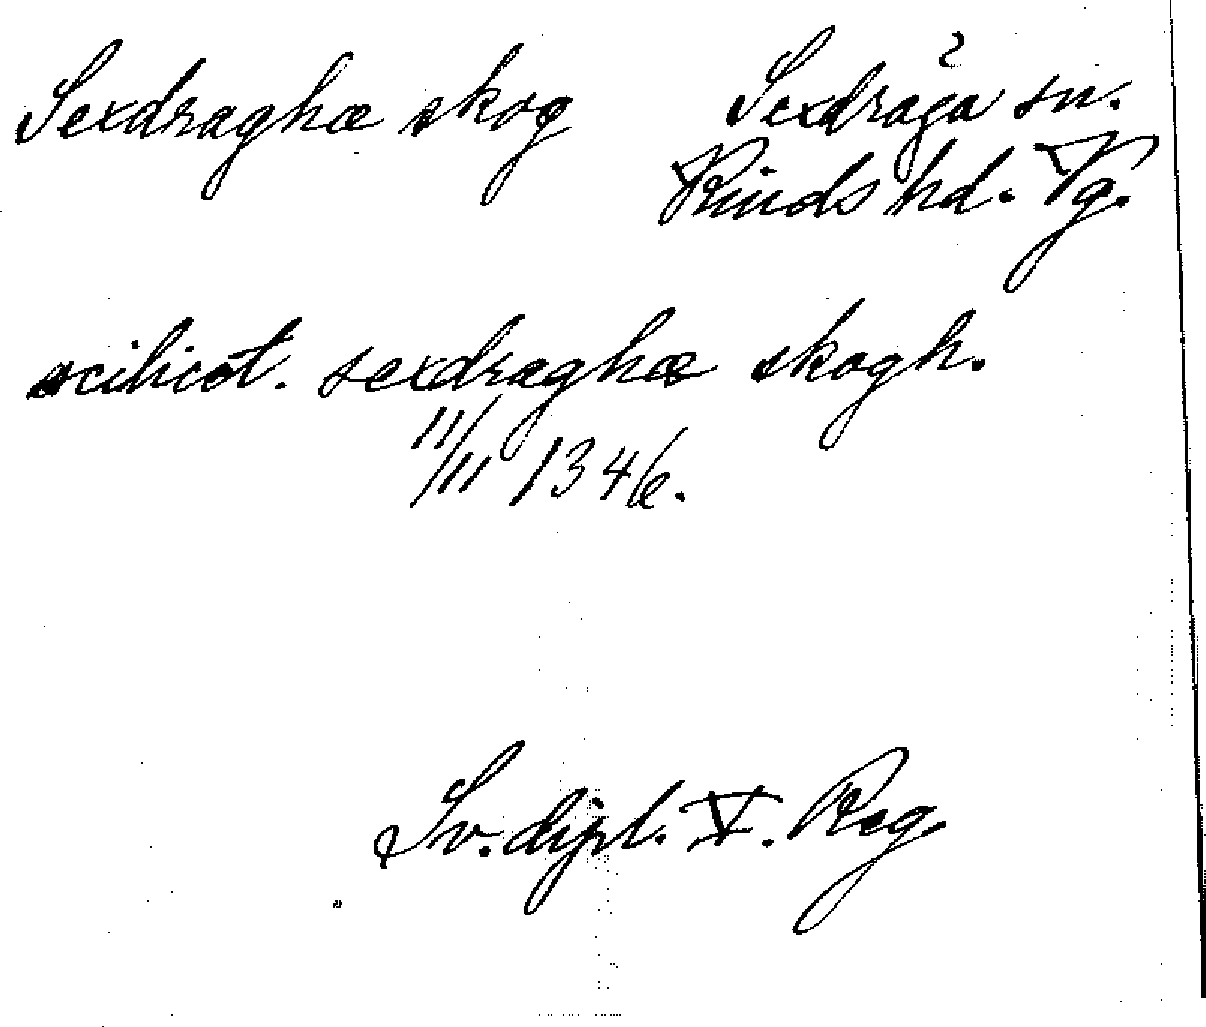 Sexdraghæ skog
?
Sexdräga sn.
Kinds hd. Vg.
scilicet. sexdraghæ skogh.
11/11 1346.
Sv. dipl. V. Reg.